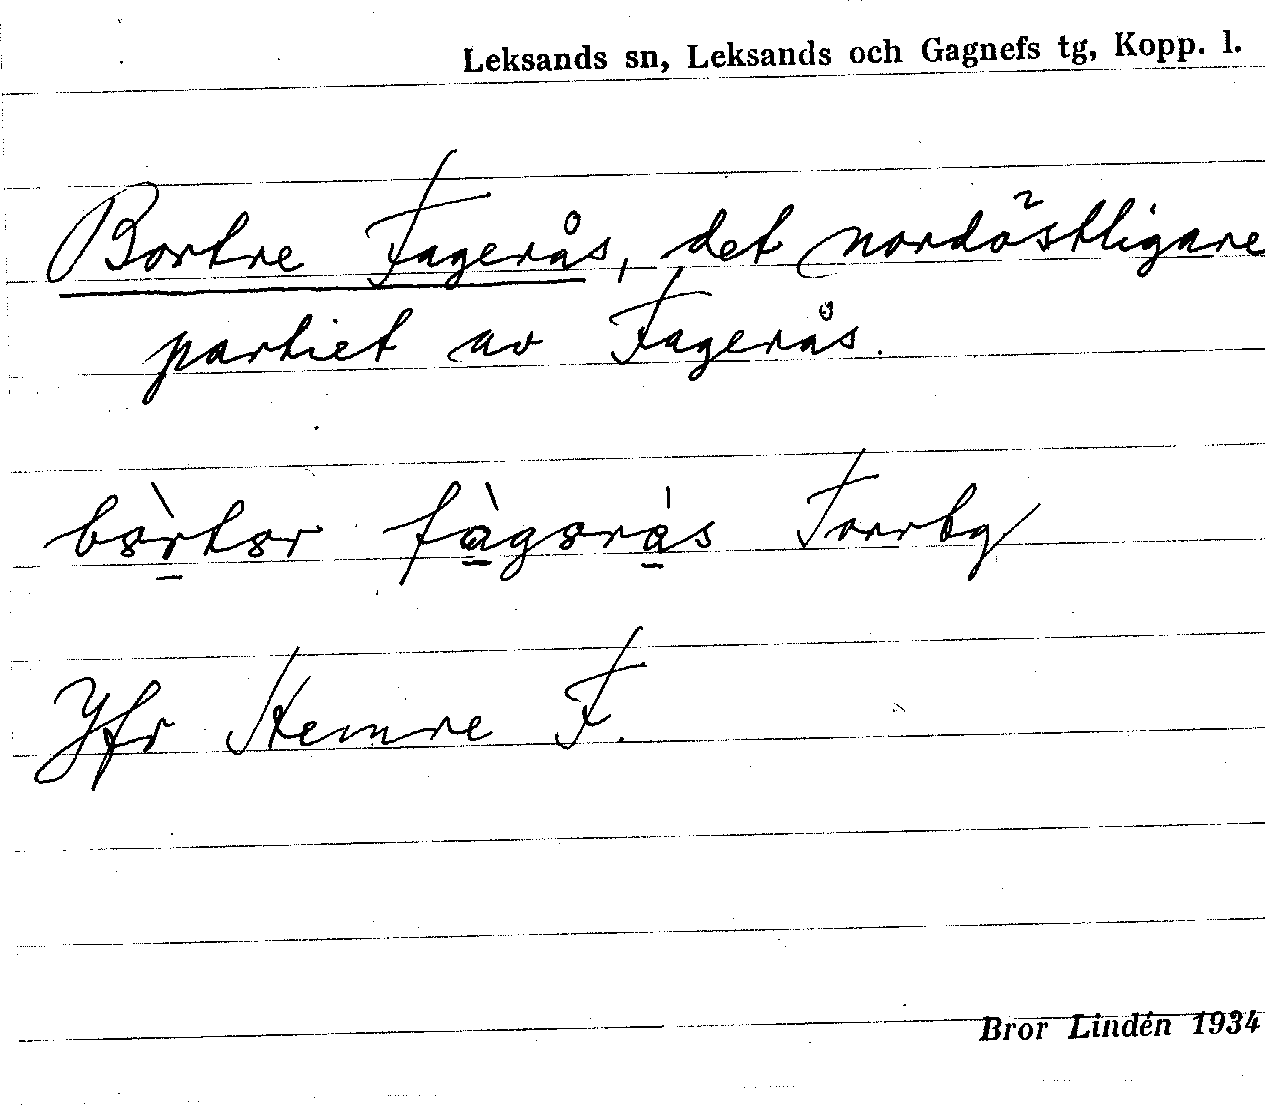 Leksands sn, Leksands och Gagnefs tg, Kopp. l.
Bortre Fagerås, det nordöstligare
partiet av Fagerås.
Torrbg
Jfr Hemre F.
Bror Lindén 1934